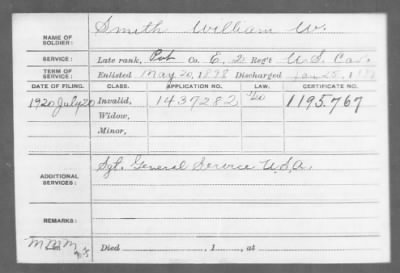 NAME OF SOLDIER: Smith William W.
SERVICE: Late rank, Pvt Co. E, 2 Reg't U.S. Cav.
TERM OF SERVICE: Enlisted May 20, 1898 Discharged Jan 25, 1899
DATE OF FILING. CLASS. APPLICATION NO. LAW. CERTIFICATE NO.
1920 July 20 Invalid, 1437282 1195.767
Widow,
Minor,
ADDITIONAL SERVICES: Sgt. General Service U.S.A.
REMARKS:
Died , 1 , at